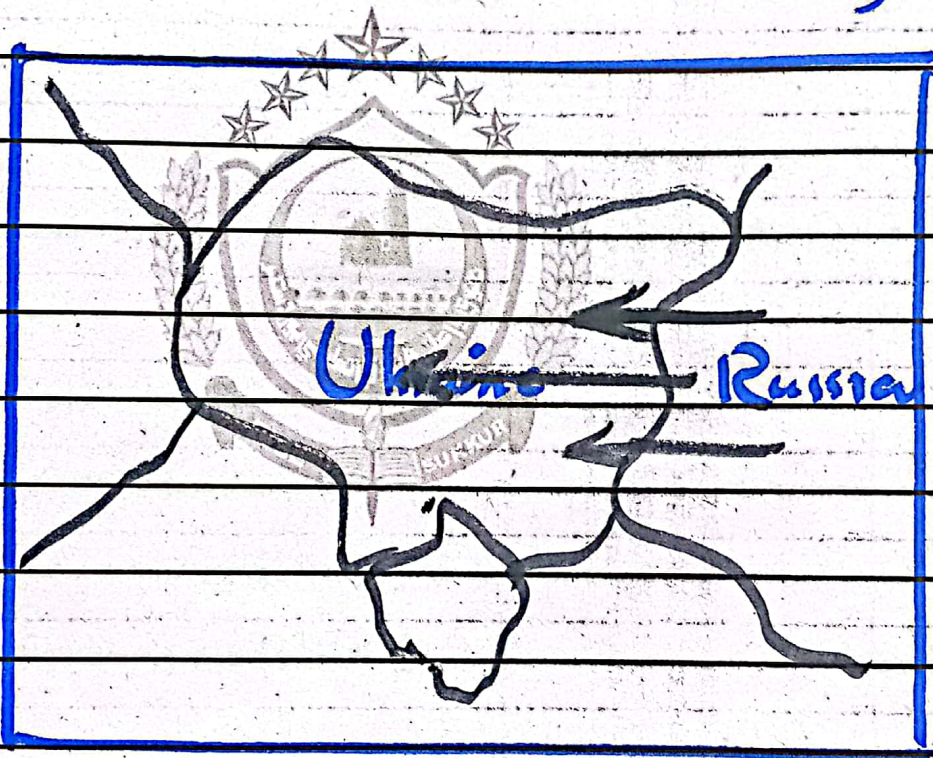 Ukraine Russia
SUKKUR